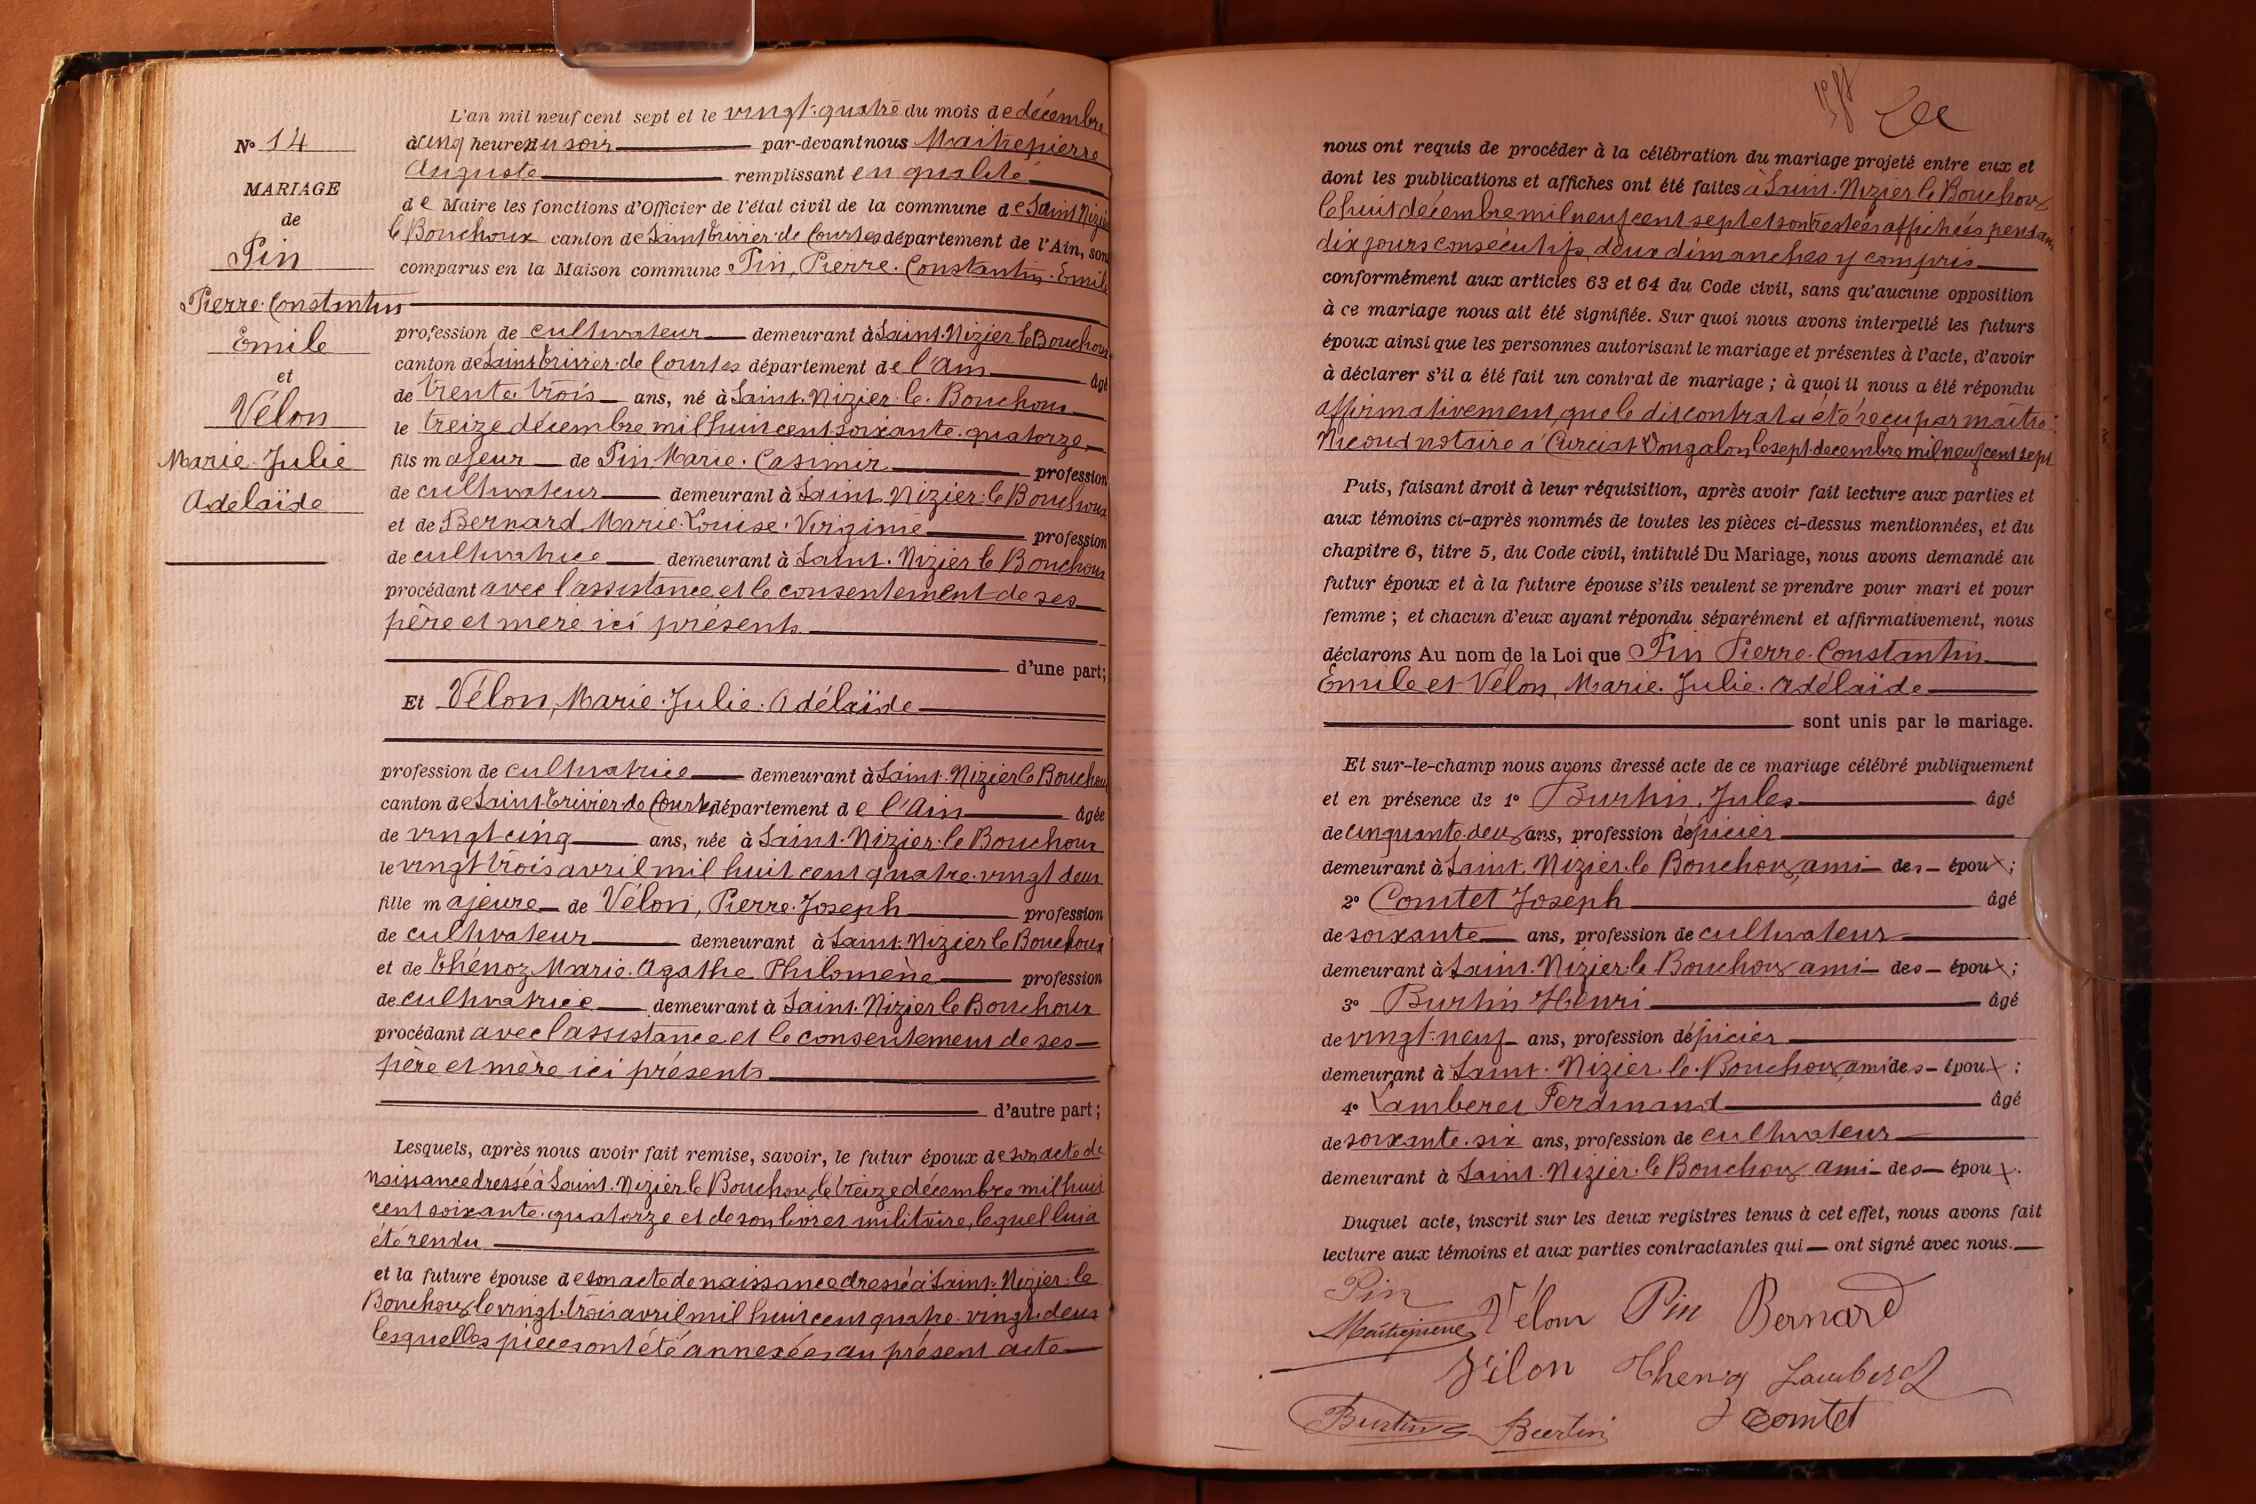 N° 14
MARIAGE
de
Pin
Pierre-Constantin
Emile
et
Vélon
Marie-Julie
Adélaïde
L'an mil neuf cent sept et le vingt-quatre du mois de décembre
à cinq heures du soir par-devant nous Maitrepierre
Auguste remplissant en qualité
de Maire les fonctions d'Officier de l'état civil de la commune de Saint Nizier
le Bouchoux canton de Saint Trivier-de Courtes département de l'Ain, sont
comparus en la Maison commune Pin, Pierre-Constantin-Emile
profession de cultivateur demeurant à Saint-Nizier le Bouchoux
canton de Saint Trivier-de Courtes département de l'Ain âgé
de trente trois ans, né à Saint-Nizier-le-Bouchoux
le treize décembre mil huit cent soixante-quatorze,
fils majeur de Pin, Marie-Casimir profession
de cultivateur demeurant à Saint-Nizier-le Bouchoux
et de Bernard Marie-Louise-Virginie profession
de cultivatrice demeurant à Saint-Nizier le Bouchoux
procédant avec l'assistance et le consentement de ses
père et mère ici présents
d'une part;
Et Vélon, Marie-Julie-Adélaïde
profession de cultivatrice demeurant à Saint-Nizier le Bouchoux
canton de Saint-Trivier-de Courtes département de l'Ain âgée
de vingt-cinq ans, née à Saint-Nizier-le Bouchoux
le vingt trois avril mil huit cent quatre-vingt deux
fille majeure de Vélon, Pierre-Joseph profession
de cultivateur demeurant à Saint-Nizier le Bouchoux
et de Thénoz Marie-Agathe Philomène profession
de cultivatrice demeurant à Saint-Nizier le Bouchoux
procédant avec l'assistance et le consentement de ses
père et mère ici présents
d'autre part;
Lesquels, après nous avoir fait remise, savoir, le futur époux de son acte de
naissance dressé à Saint-Nizier-le Bouchoux le treize décembre mil huit
cent soixante-quatorze et de son livret militaire, lequel lui a
été rendu
et la future épouse de son acte de naissance dressé à Saint-Nizier-le
Bouchoux le vingt-trois avril mil huit cent quatre-vingt-deux
lesquelles pièces ont été annexées au présent acte
nous ont requis de procéder à la célébration du mariage projeté entre eux et
dont les publications et affiches ont été faites à Saint-Nizier le Bouchoux
le huit décembre mil neuf cent sept et sont restées affichées pendant
dix jours consécutifs, deux dimanches y compris
conformément aux articles 63 et 64 du Code civil, sans qu'aucune opposition
à ce mariage nous ait été signifiée. Sur quoi nous avons interpellé les futurs
époux ainsi que les personnes autorisant le mariage et présentes à l'acte, d'avoir
à déclarer s'il a été fait un contrat de mariage; à quoi il nous a été répondu
affirmativement, que le dit contrat a été reçu par maître
Nicoud notaire à Curciat Dongalon le sept décembre mil neuf cent sept
Puis, faisant droit à leur réquisition, après avoir fait lecture aux parties et
aux témoins ci-après nommés de toutes les pièces ci-dessus mentionnées, et du
chapitre 6, titre 5, du Code civil, intitulé Du Mariage, nous avons demandé au
futur époux et à la future épouse s'ils veulent se prendre pour mari et pour
femme; et chacun d'eux ayant répondu séparément et affirmativement, nous
déclarons Au nom de la Loi que Pin Pierre-Constantin
Emile et Vélon, Marie-Julie-Adélaïde
sont unis par le mariage.
Et sur-le-champ nous avons dressé acte de ce mariage célébré publiquement
et en présence de 1° Burtin, Jules âgé
de cinquante-deux ans, profession d'épicier
demeurant à Saint-Nizier-le Bouchoux, ami des époux;
2° Comtet Joseph âgé
de soixante ans, profession de cultivateur
demeurant à Saint-Nizier-le Bouchoux ami des époux;
3° Burtin Henri âgé
de vingt-neuf ans, profession d'épicier
demeurant à Saint-Nizier-le-Bouchoux, ami des époux;
4° Lamberet Ferdinand âgé
de soixante-six ans, profession de cultivateur
demeurant à Saint-Nizier-le Bouchoux ami des époux.
Duquel acte, inscrit sur les deux registres tenus à cet effet, nous avons fait
lecture aux témoins et aux parties contractantes qui ont signé avec nous.
Pin
Maitrepierre Vélon Pin Bernard
Vélon Thenoz Lamberet
Burtin Burtin J Comtet